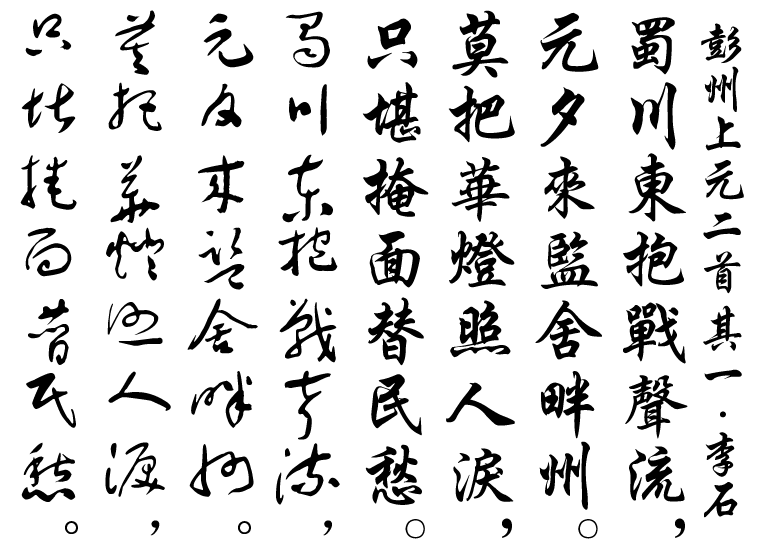 彭州上元二首其一·李石
蜀川東抱戰聲流，
元夕來監舍畔州。
莫把華燈照人淚，
只堪掩面替民愁。
蜀川東抱戰聲流，
元夕來監舍畔州。
莫把華燈照人淚，
只堪掩面替民愁。